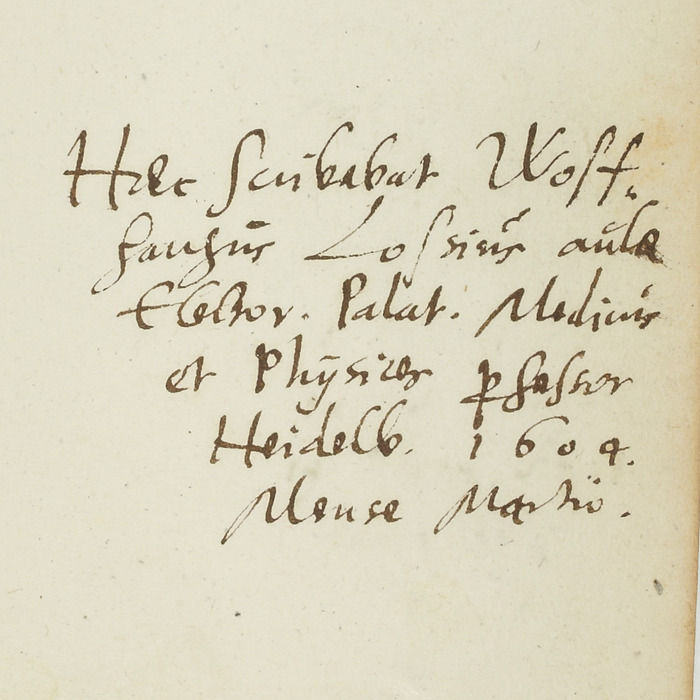 Hæc scribebat Wolf-
gangus Lossius aulæ
Elector. Palat. Medicus
et Physices ꝓfessor
Heidelb. 1604.
Mense Martio.